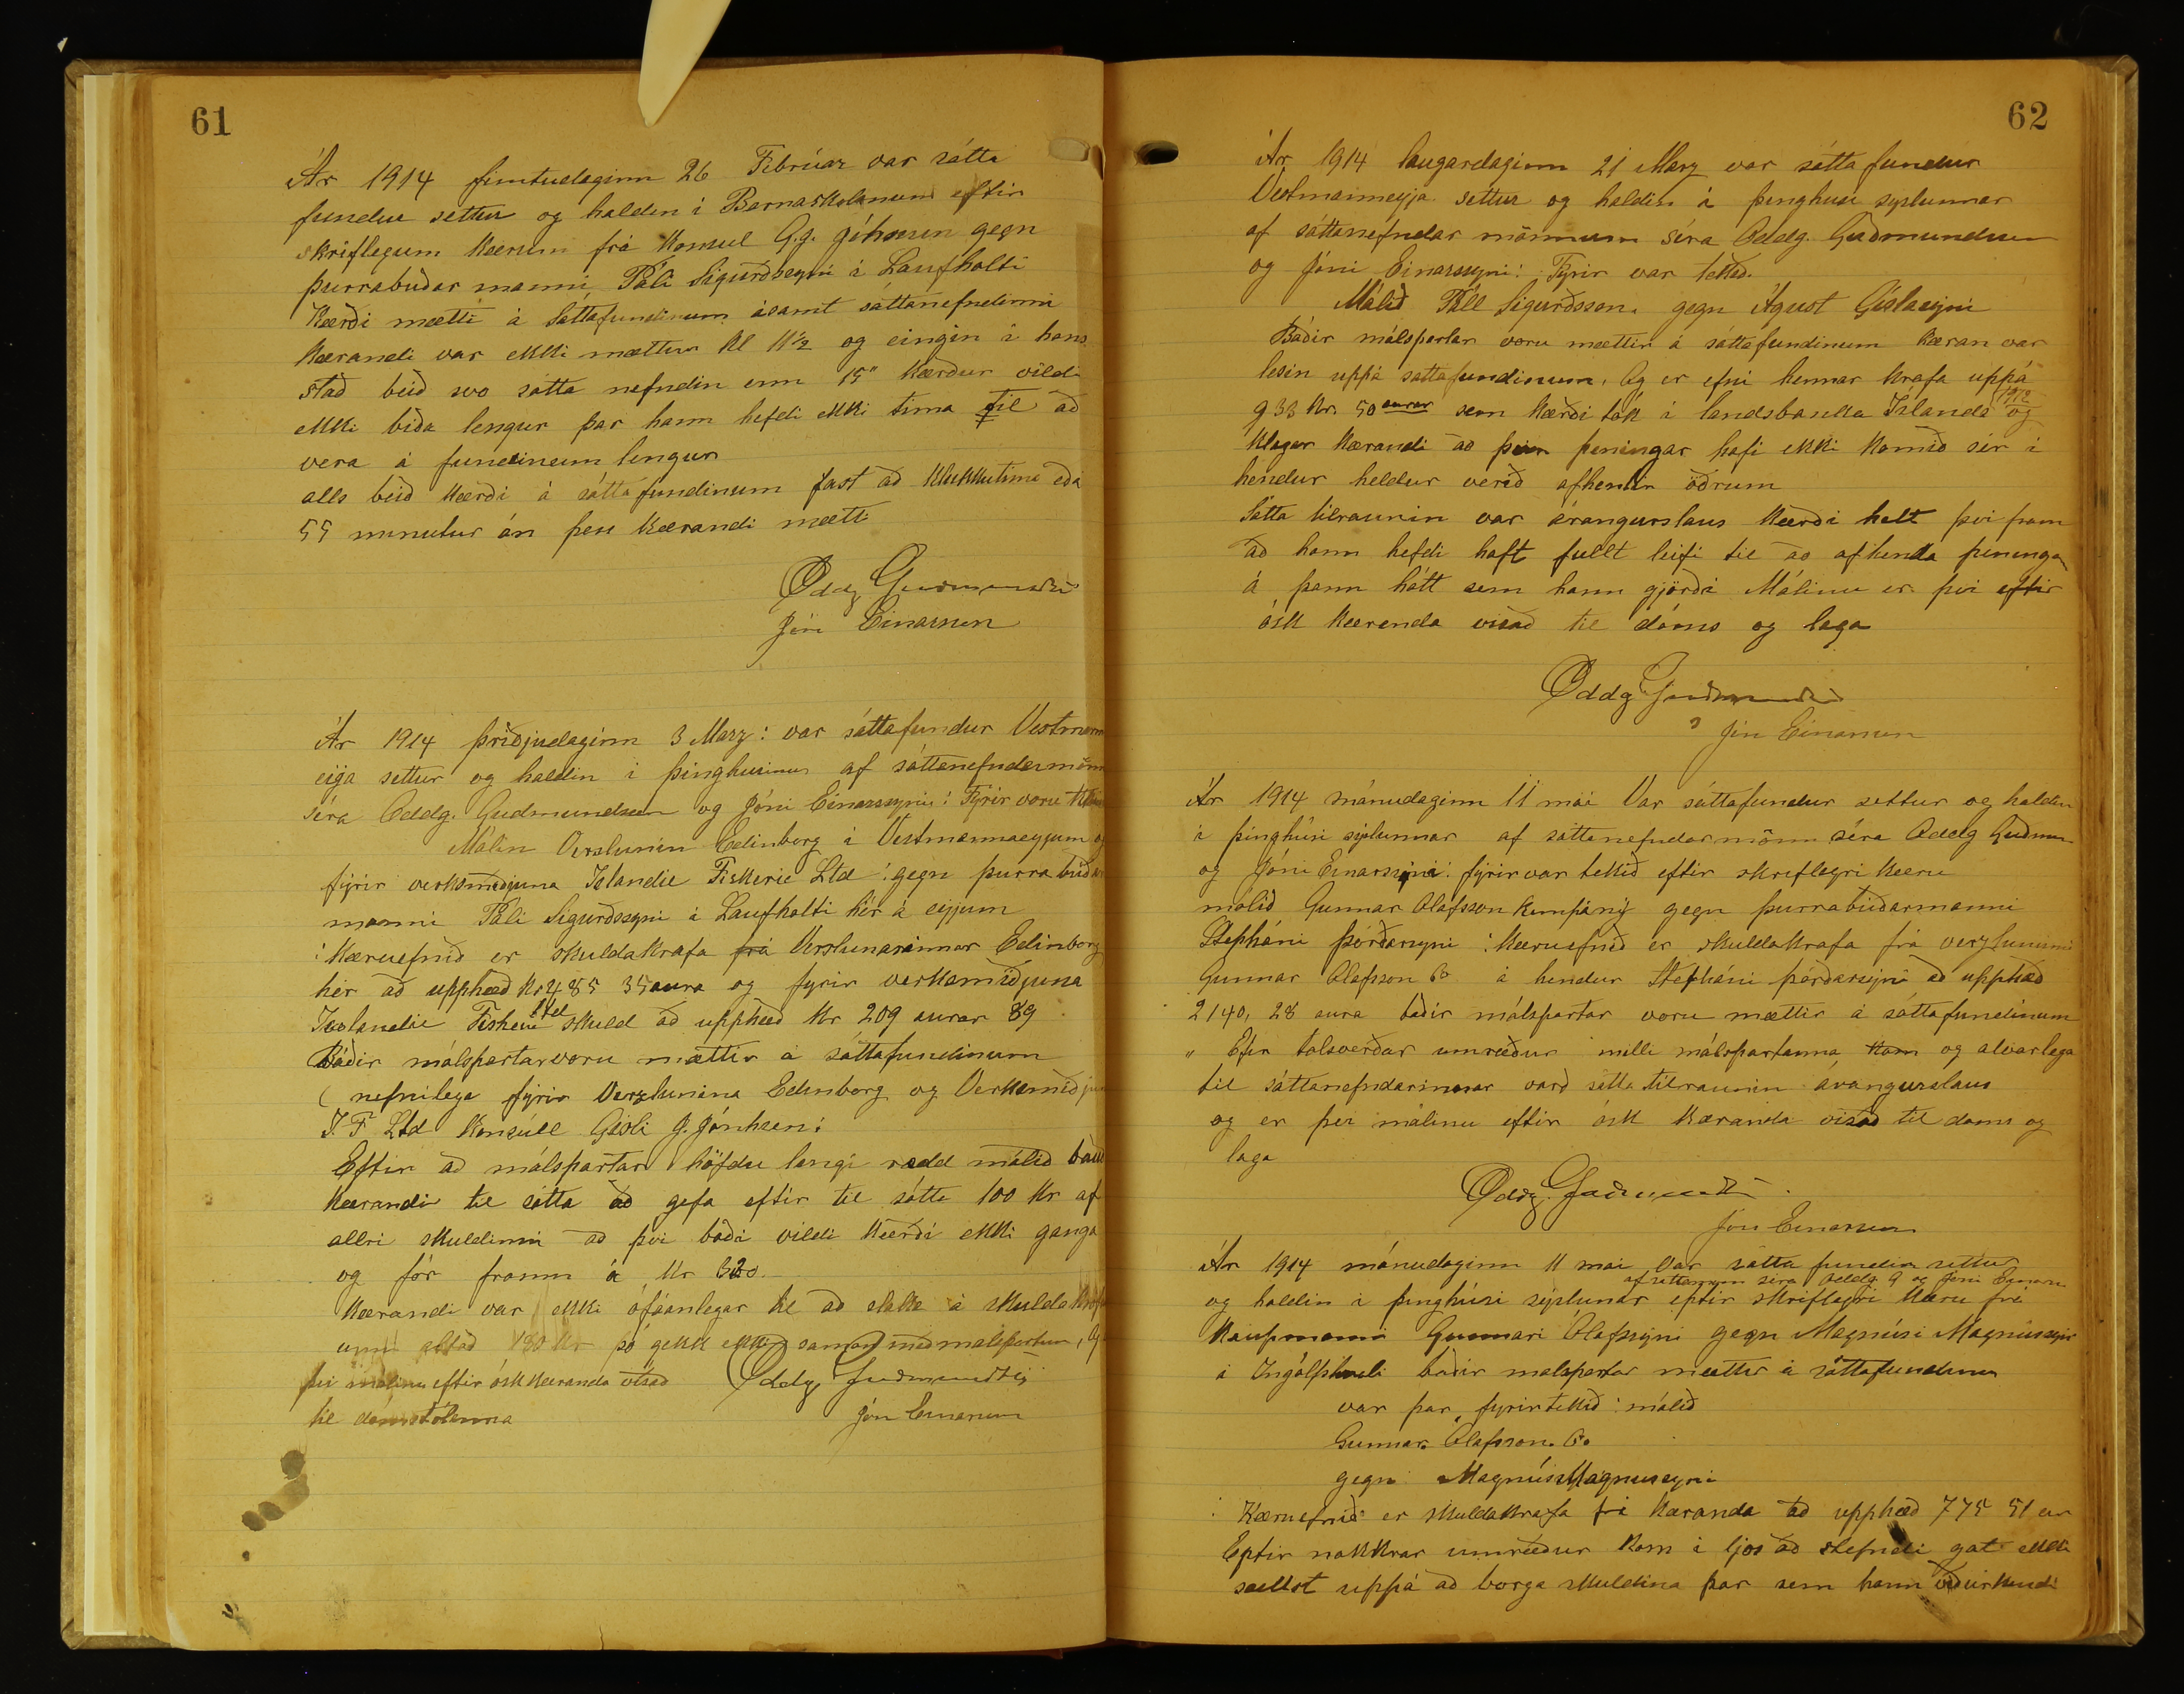 61
Ár 1914 fimtudaginn 26 Febrúar var sátta
fundur settur og haldin í Barnaskolanum eftir
skriflegum kærum frá Konsul G.J. Johnsen gegn
þurrabuðar manni Páli Sigurðssyni í Laufholti
Kærði mætti á Sáttafundinum ásamt sáttanefndinni
Kærandi var ekki mættur kl 11½ og eingin í hans
stað beið svo sátta nefndin enn 15" Kærður vildi
ekki bíða lengur þar hann hefdi ekki tima til að
vera á fundineum lengur
alls beið Kærði á sáttafundinum fast að klukkutima eða
55 minutur án þess Kærandi mætti
Oddg Guðmundsen
Jón Einarsson
Ár 1914 þriðjudaginn 3 Marz: var sáttafundur Vestmann
eija settur og haldin í þinghusinu af sáttanefndarmönn
séra Oddg. Gudmundsen og Jóni Einarssyni: Fyrir voru tekin
Málin Verslunin Edinborg í Vestmannaeyjum og
fyrir verksmiðjuna Islandie Fiskerie Ltd: gegn þurrabúðar
manni Páli Sigurðssyni í Laufholti hér á eyjum
: Kæruefnið er skuldakrafa frá Verslunarinnar Edinborg
hér að upphæð kr 485 35 aura og fyrir verksmiðjuna
Iselandie Fiskerie Ltd skuld að upphæð kr 209 aurar 89
Báðir málspartar voru mættir á sáttafundinum
( nefnilega fyrir Verzlunina Edinborg og Verksmiðjuna
I.F Ltd Konsúll Gísli J. Jónhsen:
Eftir að málspartar höfdu lengi rædd málið bauð
Kærandi til sátta að gefa eftir til sátta 100 kr af
allri skuldinni að því boði vildi Kærði ekki ganga
og fór framm á kr 320.
Kærandi var ekki ófáanlegar til að slaka á skuldakröf
unni altað 150 kr þó gekk ekki saman með malspörtum, og
því málinu eftir ósk Kæranda vísað Oddg Guðmundsen
til dómstólanna Jón Einarsson
62
Ár 1914 laugardaginn 21 Marz var sátta fundur
Vestmanneyja settur og haldin á þinghusi syslunnar
af sáttanefndar mönnum séra Oddg. Guðmundsen
og Jóni Einarssyni: Fyrir var tekið.
Málið Páll Sigurðsson. gegn Ágúst Gíslasyni
Báðir málspartar voru mættir á sáttafundinum Kæran var
lesin uppá sattafundinum. Og er efni hennar krafa uppá
933 kr. 50 aurar sem Kærði tók í landsbanka Islands 1912 og
klagar Kærandi að þeir peningar hafi ekki komið sér í
hendur heldur verið afhentir öðrum
Sátta tilraunin var árangurslaus Kærði helt því fram
að hann hefdi haft fullt leifi til að afhenda peninga
á þann hátt sem hann gjörði Málinu er því eftir
ósk Kærenda vísað til dóms og laga
Oddg Guðmundsen
Jón Einarsson
Ár 1914 mánudaginn 11 mái Var sáttafundur settur og haldin
í þinghúsi sýslunnar af sáttanefndarmönn séra Oddg Guðmun
og Jóni Einarssyni: fyrir var tekið eftir skriflegri kæru
málið Gunnar Olafsson Kumpáni gegn þurrabúðarmanni
Stepháni þórðarsyni: Kæruefnið er skuldakrafa frá verzluninni
Gunnar Olafsson Co á hendur Stepháni þórðarsyni að upphæð
2140, 28 aura báðir málspartar voru mættir á sáttafundinum
" Eftir talsverðar umræður milli málspartanna kom og alvarlega
til sáttanefndarinnar varð sátta tilraunin árangurslaus
og er því málinu eftir ósk Kæranda vísað til doms og
laga
Oddg. Guðmundsen.
Jón Einarsson
Ár 1914 mánudaginn 11 mai Var sátta fundur settur
af séra Oddg. G og Jóni Einarss
og haldin í þinghúsi sýslunar eptir skriflegri Kæru frá
Kaupmanni Gunnari Olafssyni gegn Magnúsi Magnússyni
á Ingólfshvoli báðir malspartar mættir á sáttafundinu
var þar fyrirtekið: málið
Gunnar. Olafsson. Co
gegn Magnúsi Magnussyni
: Kæruefnið er skuldakrafa frá Kæranda að upphæð 775 51 eur
Eptir nokkrar umræður kom í ljos að stefndi gat ekki
sæst uppá að borga skuldina þar sem hann viðurkendi